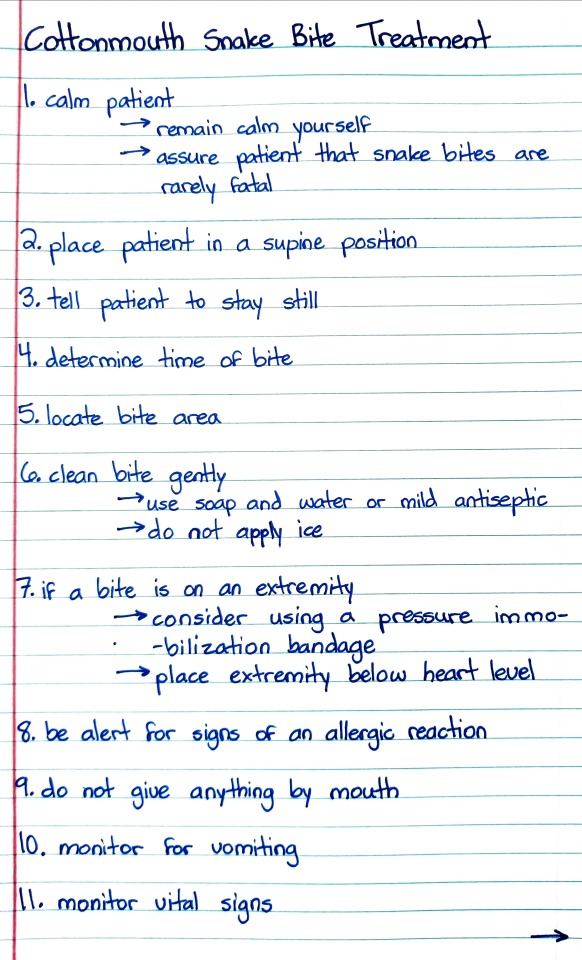 Cottonmouth Snake Bite Treatment
1. calm patient
→ remain calm yourself
→ assure patient that snake bites are
rarely fatal
2. place patient in a supine position
3. tell patient to stay still
4. determine time of bite
5. locate bite area
6. clean bite gently
→ use soap and water or mild antiseptic
→ do not apply ice
7. if a bite is on an extremity
→ consider using a pressure immo-
-bilization bandage
→ place extremity below heart level
8. be alert for signs of an allergic reaction
9. do not give anything by mouth
10. monitor for vomiting
11. monitor vital signs
→